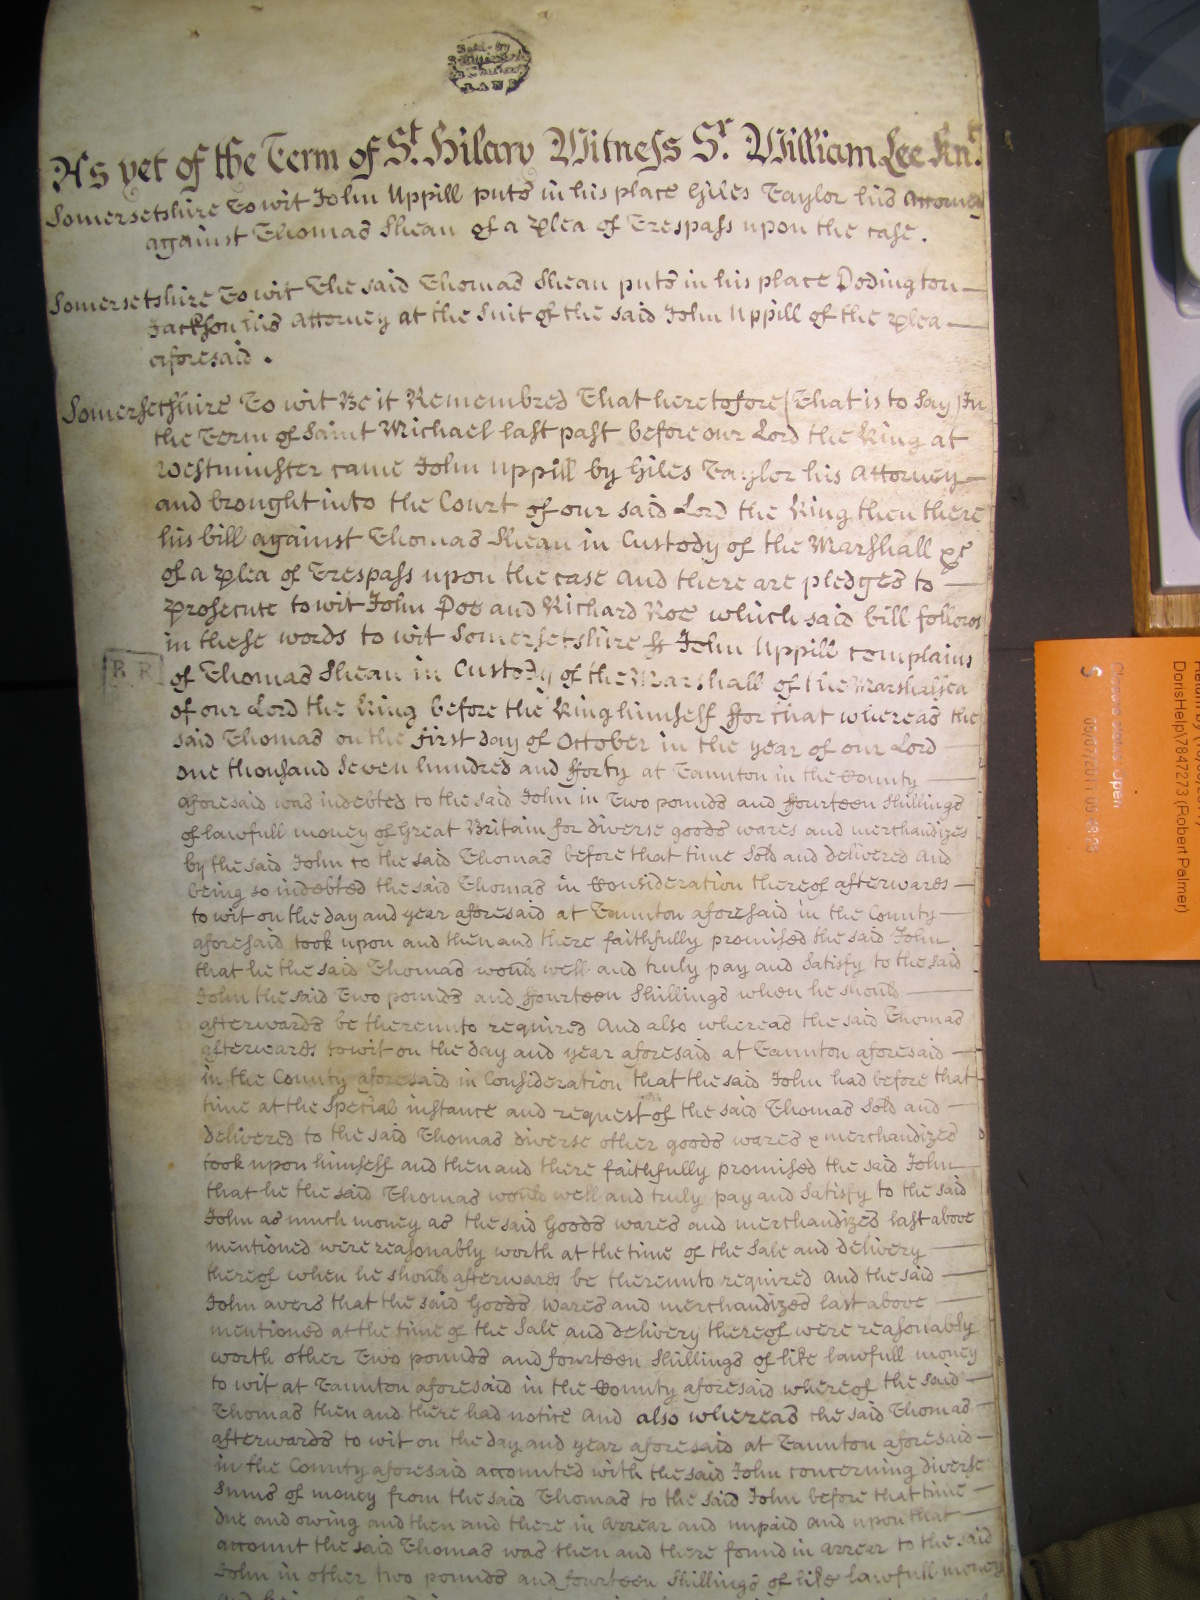 As yet of the Term of St. Hilary Witness Sr. William Lee Knt.
Somersetshire To wit John Uppill puts in his place Giles Taylor his Attorney
against Thomas Shean of a Plea of Trespass upon the case.
Somersetshire To wit The said Thomas Shean puts in his place Dodington
Jackson his Attorney at the Suit of the said John Uppill of the Plea
aforesaid.
Somersetshire To wit Be it Remembred That heretofore (That is to Say) In
the Term of Saint Michael last past before our Lord the King at
Westminster came John Uppill by Giles Taylor his Attorney
and brought into the Court of our said Lord the King then there
his bill against Thomas Shean in Custody of the Marshall &c
of a Plea of Trespass upon the case And there are pledges to
Prosecute to wit John Doe and Richard Roe which said bill follows
in these words to wit Somersetshire ss John Uppill complains
of Thomas Shean in Custody of the Marshall of the Marshalsea
of our Lord the King before the King himself ffor that whereas the
said Thomas on the first day of October in the year of our Lord
one thousand Seven hundred and fforty at Taunton in the County
aforesaid was indebted to the said John in Two pounds and ffourteen Shillings
of lawfull money of Great Britain for diverse goods wares and merchandizes
by the said John to the said Thomas before that time Sold and delivered And
being so indebted the said Thomas in Consideration thereof afterwards
to wit on the day and year aforesaid at Taunton aforesaid in the County
aforesaid took upon and then and there faithfully promised the said John
that he the said Thomas would well and truly pay and Satisfy to the said
John the said Two pounds and ffourteen Shillings when he should
afterwards be thereunto required And also whereas the said Thomas
afterwards to wit on the day and year aforesaid at Taunton aforesaid
in the County aforesaid in Consideration that the said John had before that
time at the Special instance and request of the said Thomas Sold and
delivered to the said Thomas diverse other goods wares & merchandizes
took upon himself and then and there faithfully promised the said John
that he the said Thomas would well and truly pay and Satisfy to the said
John as much money as the said Goods wares and merchandizes last above
mentioned were reasonably worth at the time of the Sale and delivery
thereof when he should afterwards be thereunto required And the said
John avers that the said Goods wares and merchandizes last above
mentioned at the time of the Sale and delivery thereof were reasonably
worth other Two pounds and fourteen Shillings of like lawfull money
to wit at Taunton aforesaid in the County aforesaid whereof the said
Thomas then and there had notice And also whereas the said Thomas
afterwards to wit on the day and year aforesaid at Taunton aforesaid
in the County aforesaid accounted with the said John concerning diverse
Sums of money from the said Thomas to the said John before that time
due and owing and then and there in Arrear and unpaid And upon that
account the said Thomas was then and there found in Arrear to the said
John in other two pounds and fourteen Shillings of like lawfull money
DorisHelp\7847273 (Robert Palmer)